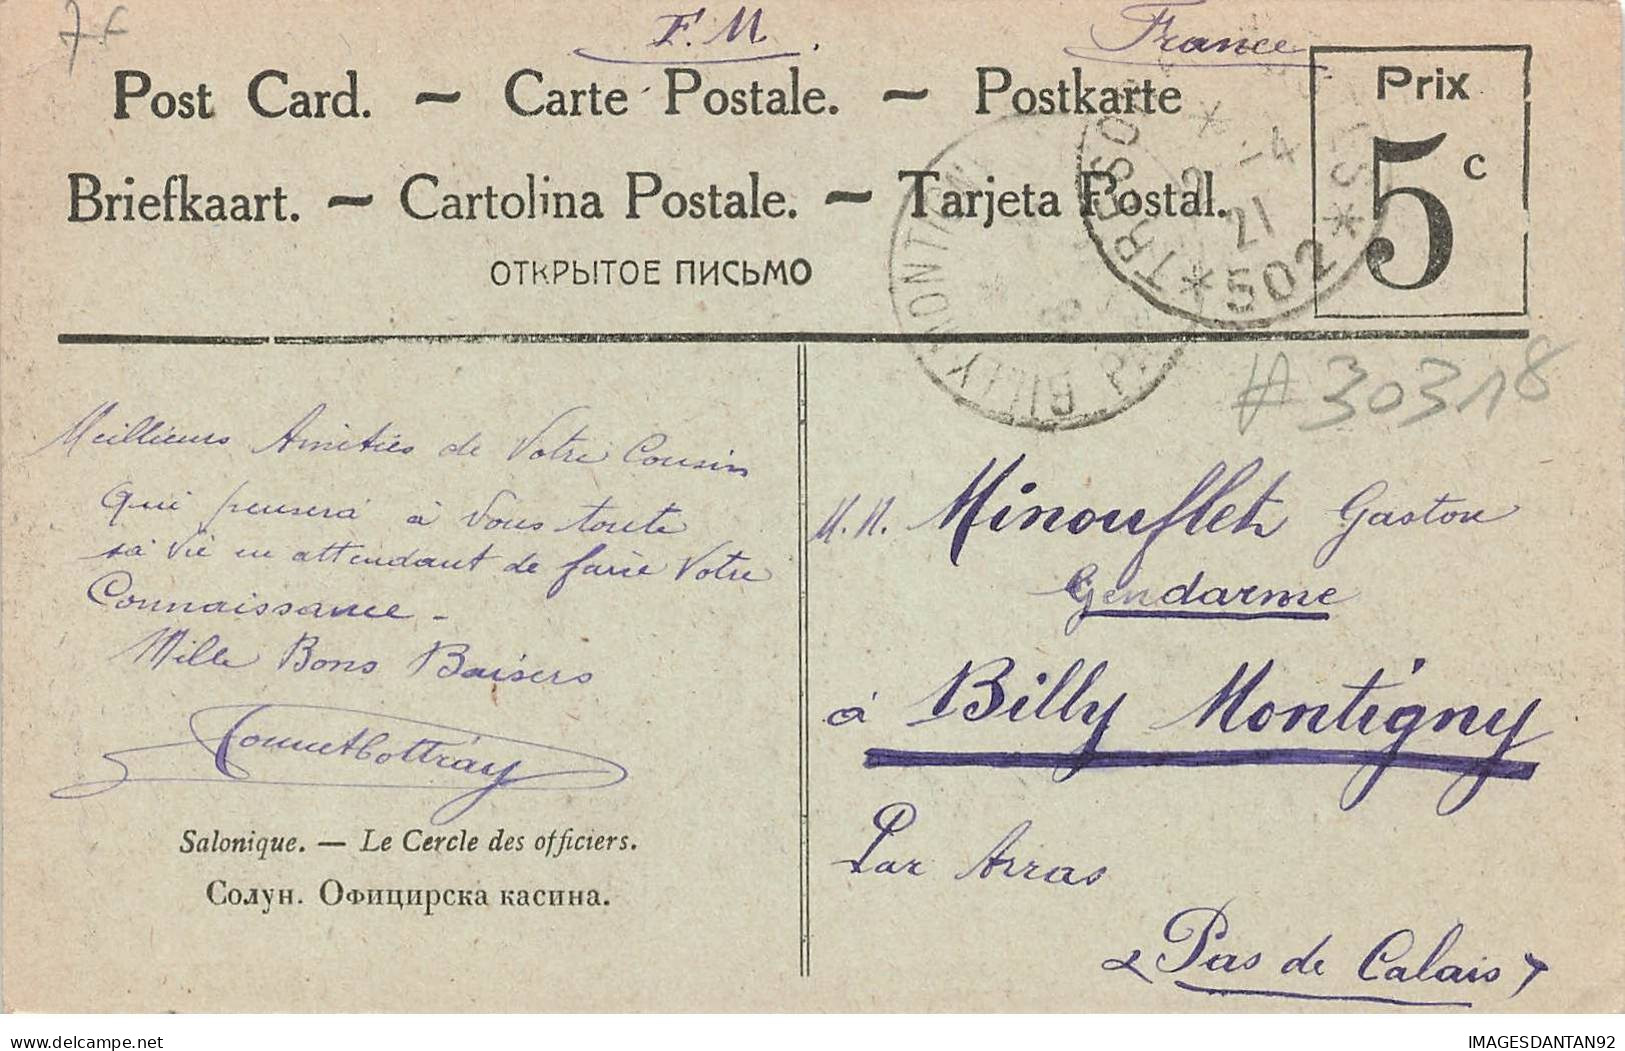 7 F
F. M.
France
Post Card. — Carte Postale. — Postkarte
Prix
5 c
Briefkaart. — Cartolina Postale. — Tarjeta Postal.
ОТКРЫТОЕ ПИСЬМО
* TRESOR
-4
21
* 502 *
BILLY MONTIGNY
#30318
Meillieurs Amitiés de Votre Cousin
Qui pensera à Vous toute
sa Vie en attendant de faire Votre
Connaissance -
Mille Bons Baisers
Salonique. — Le Cercle des officiers.
Солун. Официрска касина.
Minouflet Gaston
Gendarme
à Billy Montigny
Par Arras
Pas de Calais
delcampe.net
IMAGESDANTAN92